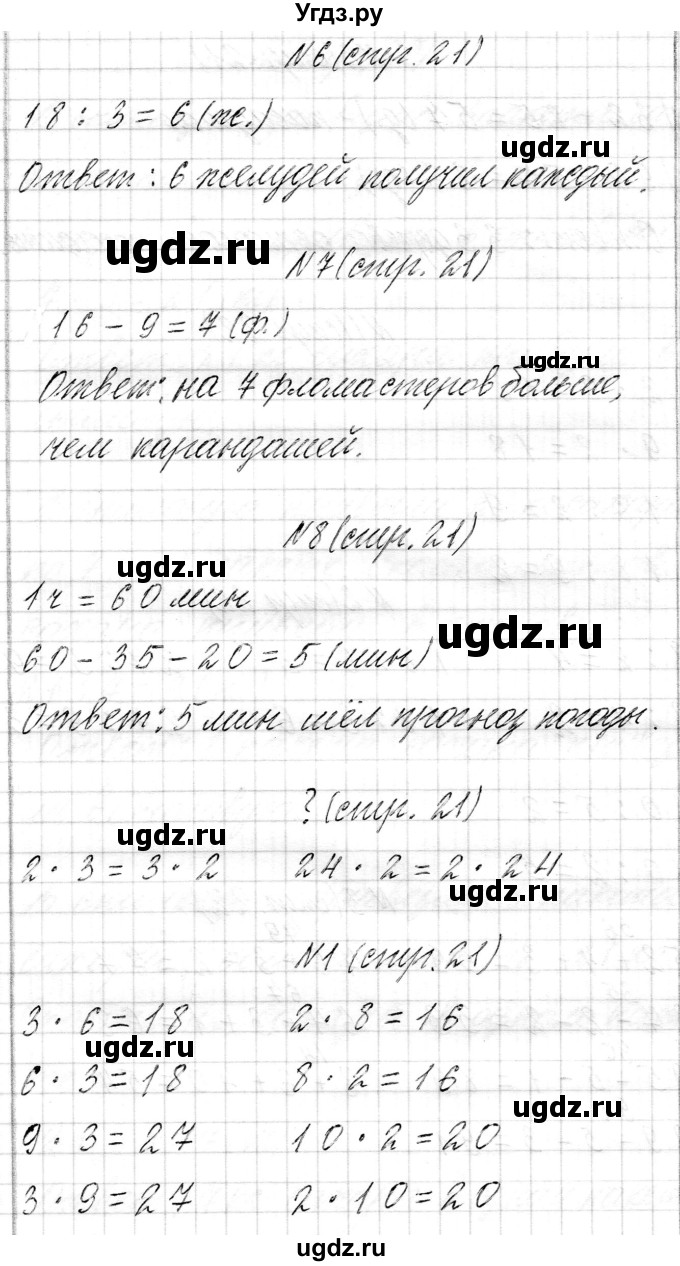 Угдз.ру
№6 (стр. 21)
18 : 3 = 6 (ж.)
ugdz.ru
Ответ: 6 желудей получил каждый.
ugdz.ru
№7 (стр. 21)
16 - 9 = 7 (ф.)
ugdz.ru
Ответ: на 7 фломастеров больше,
чем карандашей.
№8 (стр. 21)
ugdz.ru
1ч = 60 мин
ugdz.ru
60 - 35 - 20 = 5 (мин)
Ответ: 5 мин шёл прогноз погоды.
? (стр. 21)
ugdz.ru
2 · 3 = 3 · 2 24 · 2 = 2 · 24
ugdz.ru
№1 (стр. 21)
3 · 6 = 18 2 · 8 = 16
ugdz.ru
6 · 3 = 18 8 · 2 = 16
ugdz.ru
9 · 3 = 27 10 · 2 = 20
3 · 9 = 27 2 · 10 = 20
ugdz.ru